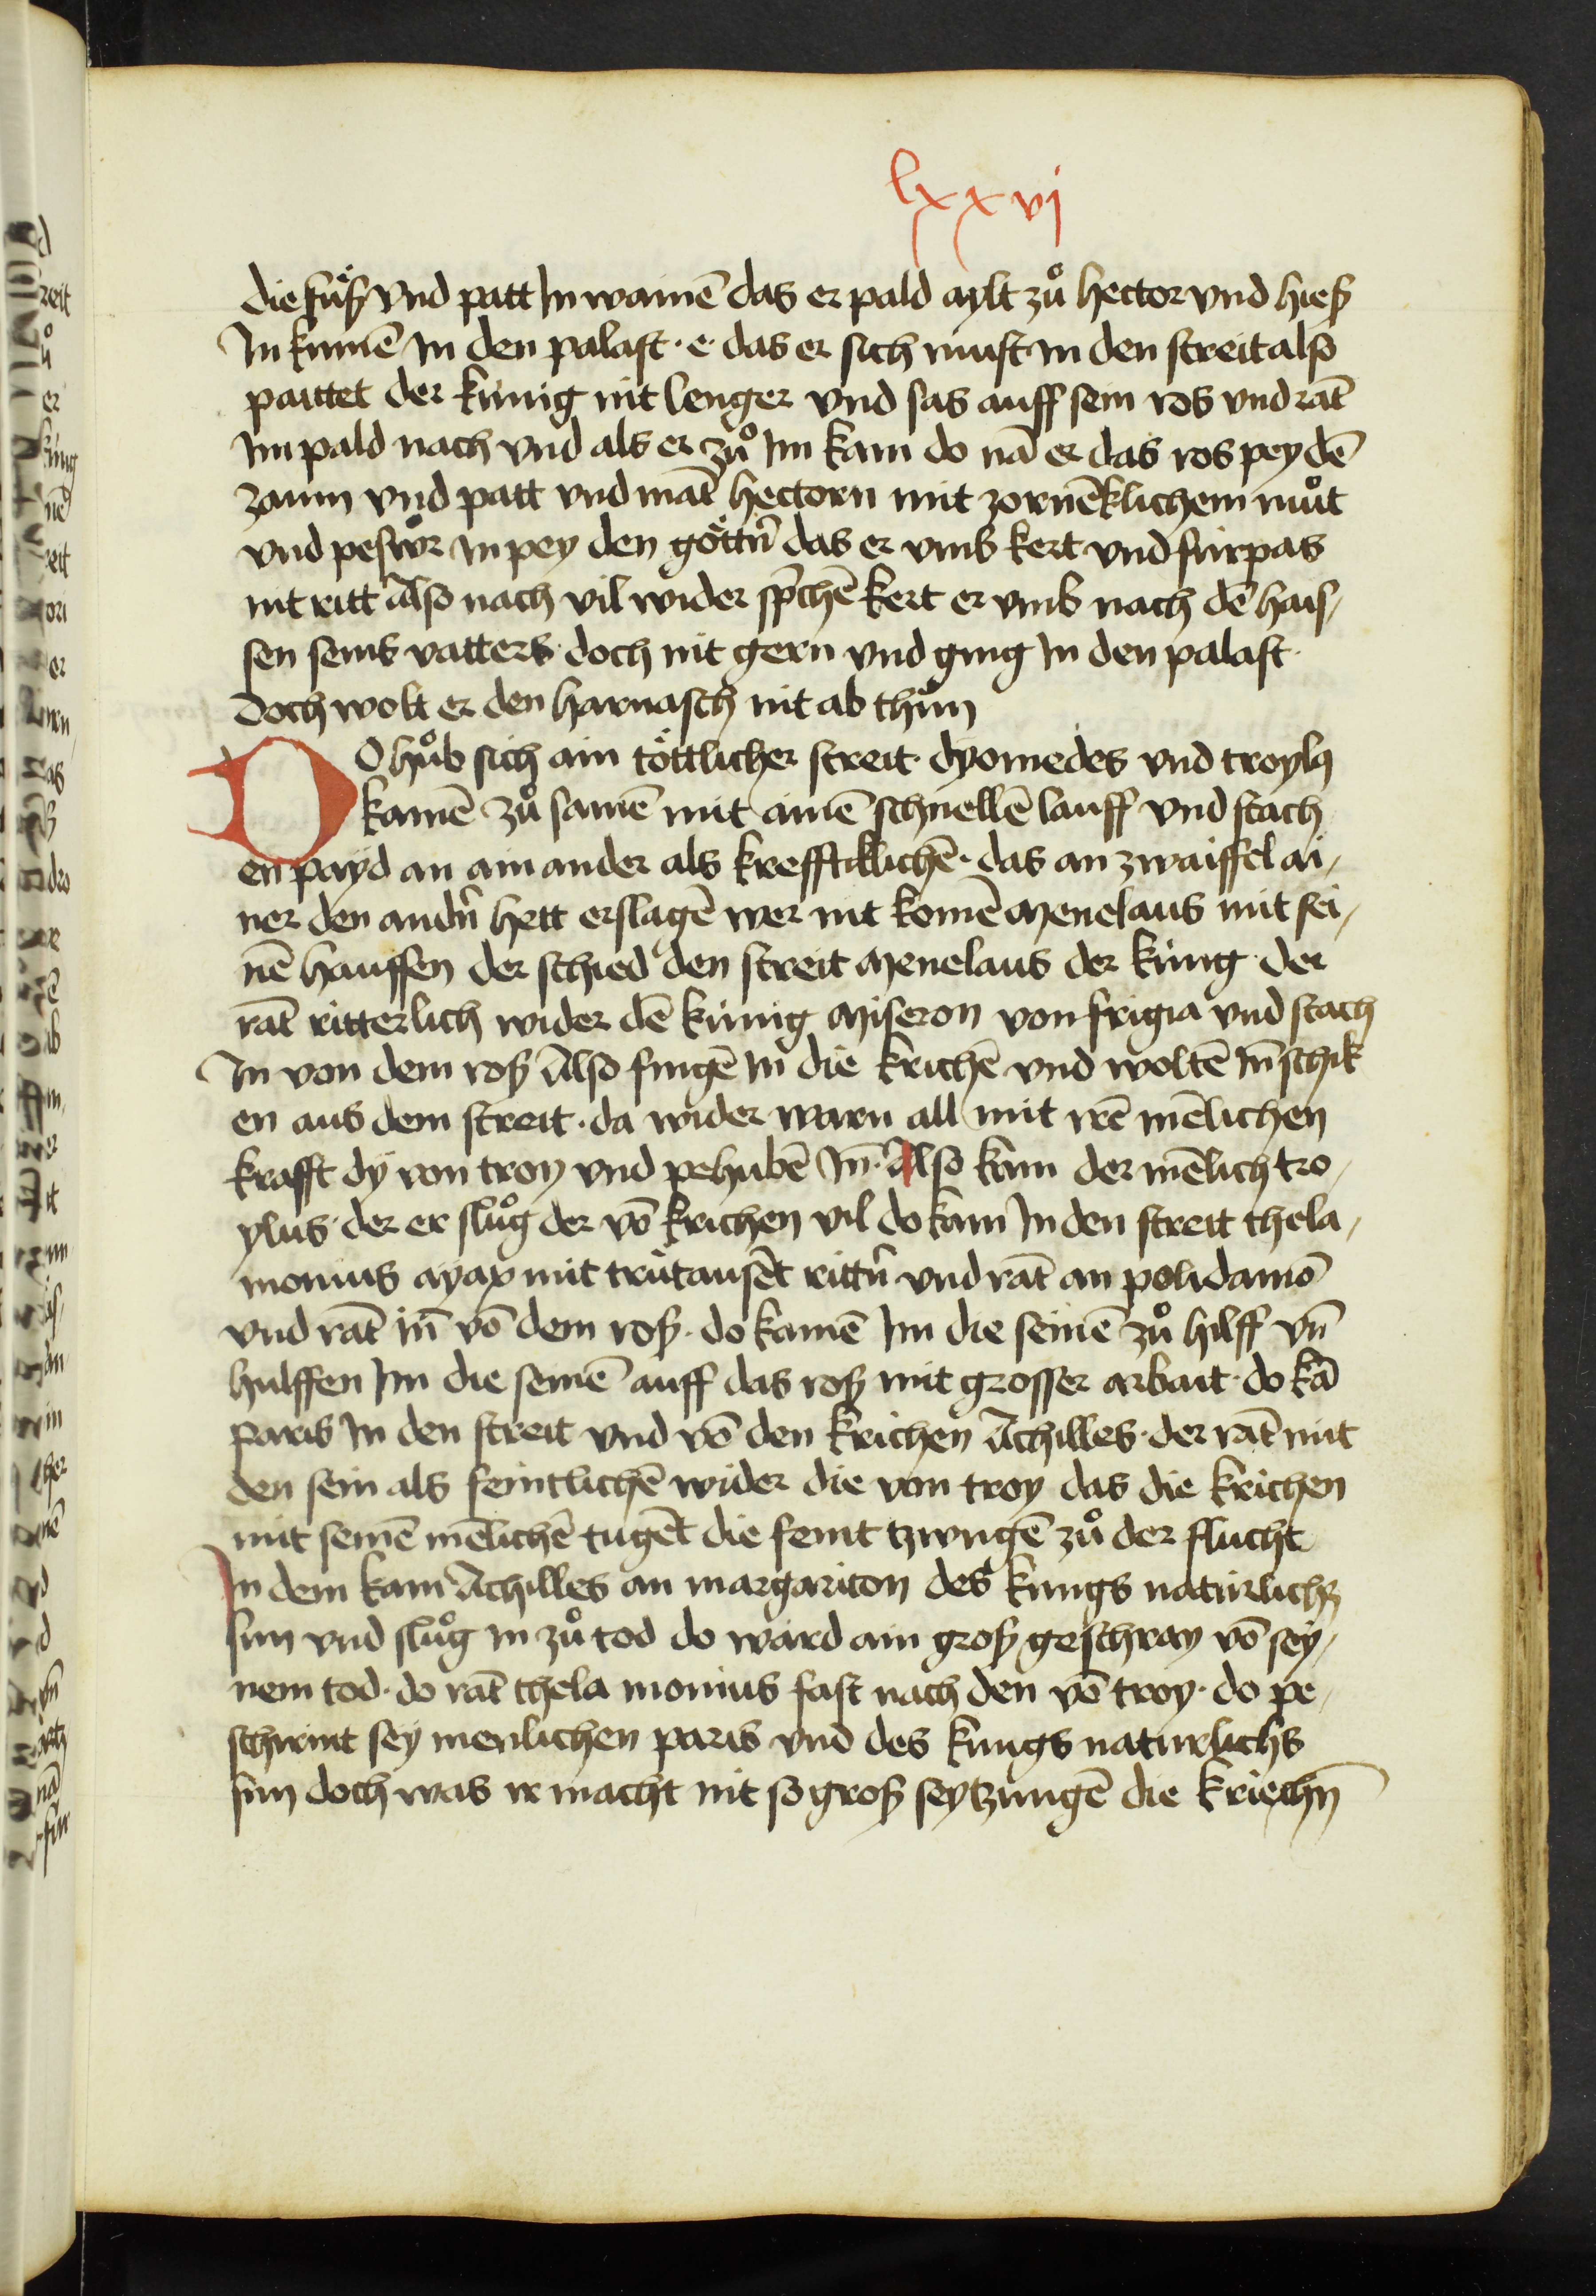 lxxvj
die fuͤß vnd patt In wainē das er pald aylt zuͦ hector vnd hieß
In kumē In den palast · e · das er sich must In den streit also
paittet der künig nit lenger vnd sas auff sein ros vnd rāt
Im pald nach vnd als er zuͦ Im kam do nā er das ros pey dē
zaum vnd patt vnd māt hectorn mit zornēklichem muͦt
vnd peswͦr In pey den göttn̄ das er vmb kert vnd fürpas
nit ritt Also nach vil wider sp̄chē kert er vmb nach dē hais,
sen seins vatters · doch nit gern vnd ging In den palast ·
Doch wolt er den harnasch nit ab thuͦn
DO huͦb sich ain töttlicher streit · dyomedes vnd troylꝰ
kamē zuͦ samē mit ainē schnellē lauff vnd stach
en payd an ain ander als krefftiklichē · das an zwaiffel ai,
ner den andn̄ hett erslagē wer nit komē Menelaus mit sei,
nē hauffen der schied den streit Menelaus der küng · der
rāt ritterlich wider dē künig Miseron von frigia vnd stach
In von dem roß Also fingē In die krichē vnd woltē In̄ schik
en aus dem streit · da wider warn all mit irē mēlichen
krafft dy von troy vnd pehubē In̄ · Also kam der mēlich tro,
ylus · der er sluͦg der vō krichen vil do kam In den streit thela,
monius ayax mit trütausēt rittn̄ vnd rāt an polidamō
vnd rāt in̄ vō dem roß · do kamē Im die seinē zuͦ hilff vn̄
hulffen Im die seinē auff das roß mit grosser arbait · do kā
paris In den streit vnd vō den krichen Achilles · der rāt mit
den sein als feintlichē wider die von troy das die krichen
mit seinē mēlichē tugēt die feint tzwngē zuͦ der flucht
In dem kam Achilles an margariton des küngs natürlichß
sun vnd sluͦg in zuͦ tod do ward ain groß geschray vō sey,
nem tod · do rāt thela monius fast nach den vō troy · do pe,
schirmt sey menlichen paris vnd des kungs naturlichs
sun doch was ir macht nit so groß sey tzungē die kriechn̄